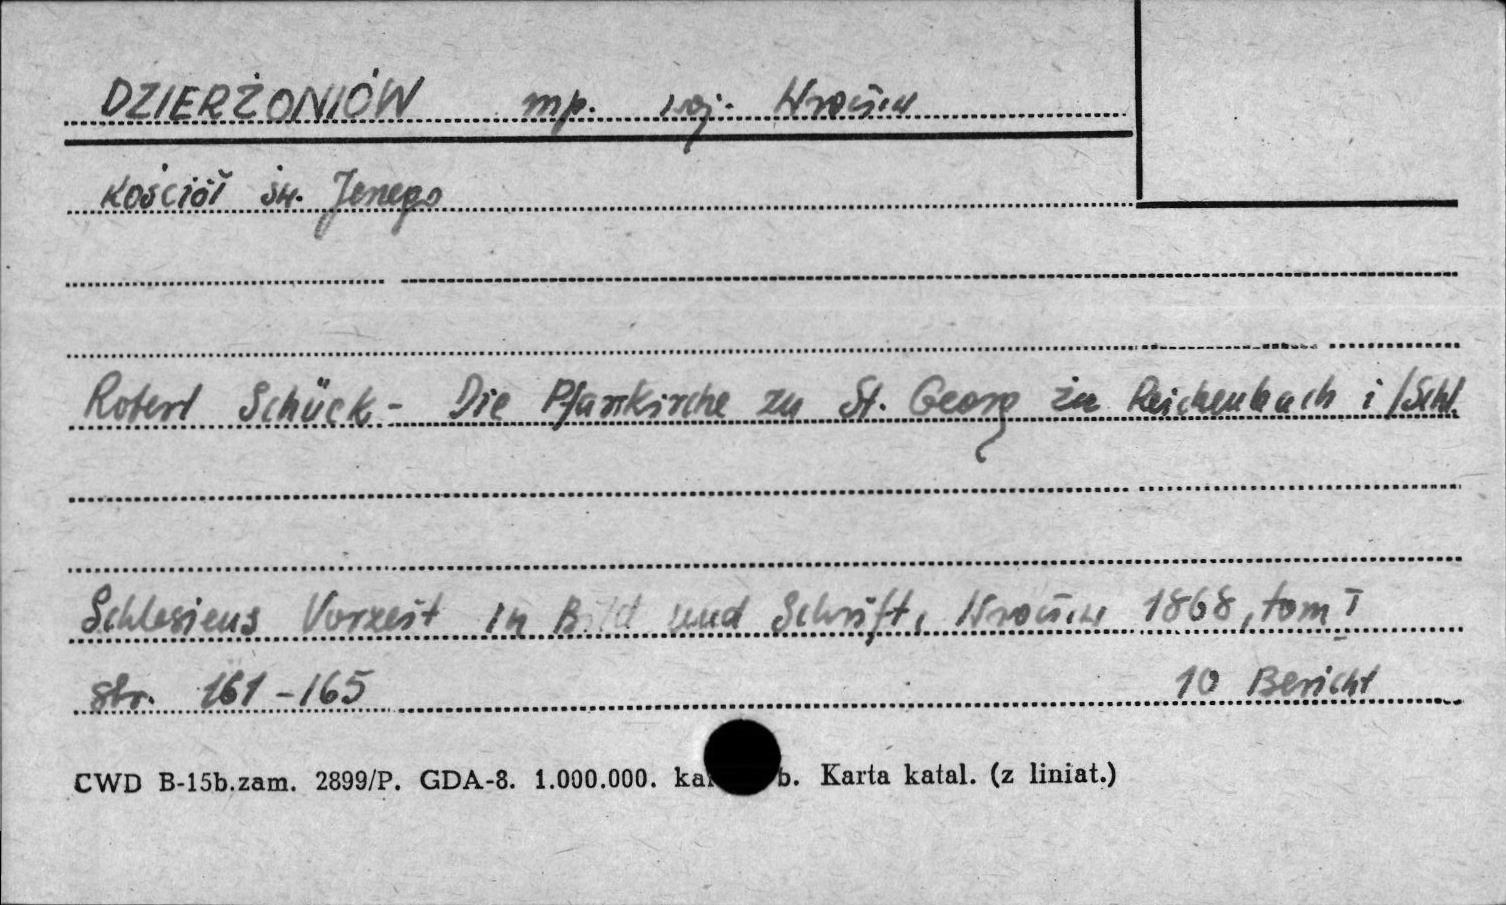 DZIERŻONIÓW mp. woj. Wrocław
Kościół św. Jerzego
Robert Schück - Die Pfarrkirche zu St. Georg in Reichenbach i/Schl.
Schlesiens Vorzeit in Bild und Schrift, Wrocław 1868, tom I
str. 161-165 10 Bericht
CWD B-15b.zam. 2899/P. GDA-8. 1.000.000. b. Karta katal. (z liniat.)